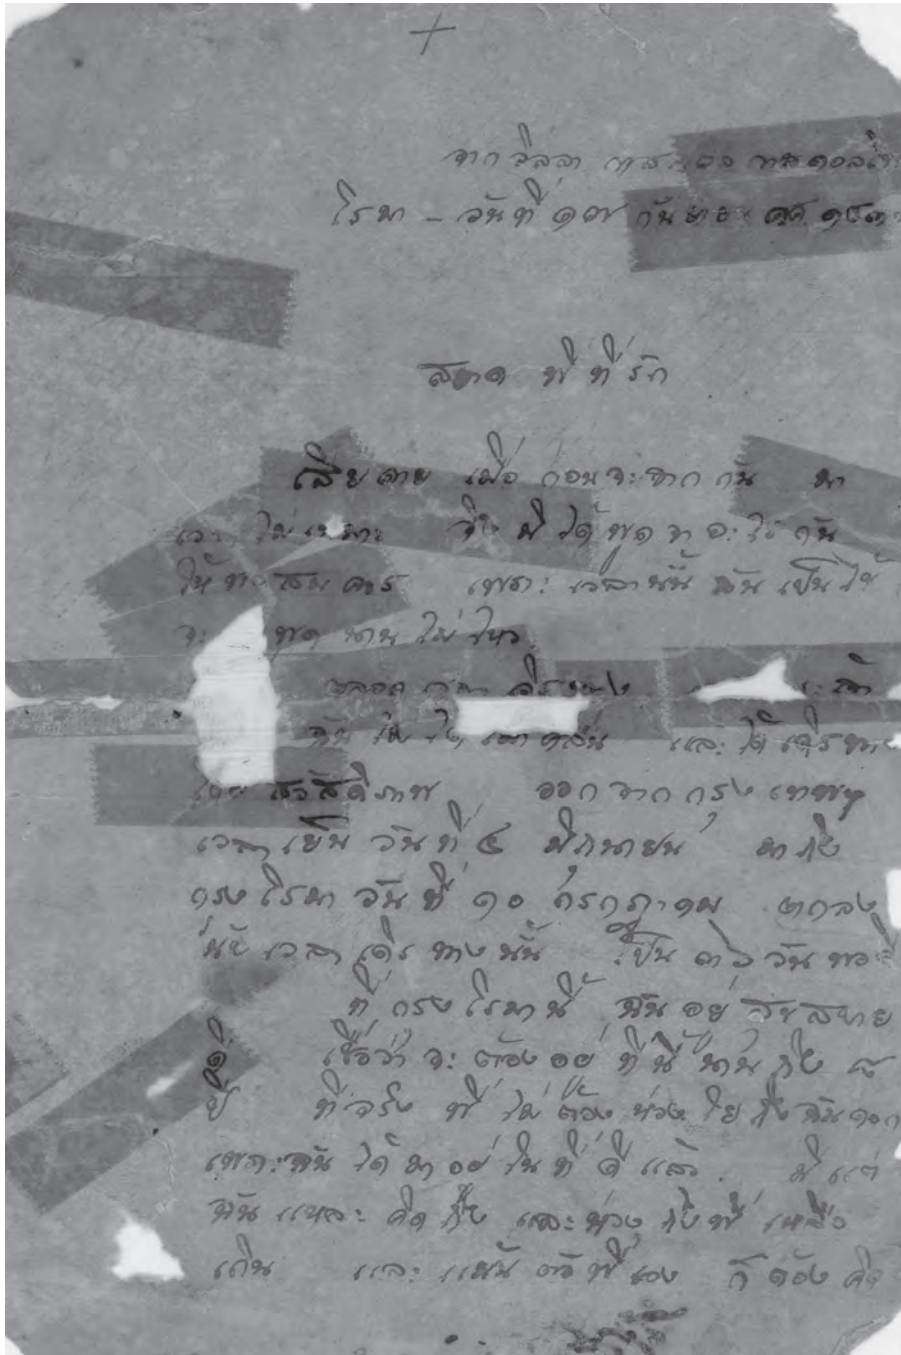 +
จากวิลลา
โรมา – วันที่ ๑๗ กันยายน ค.ศ.
สอาด พี่ ที่รัก
เสียดาย เมื่อ ก่อนจะจาก กัน มา
ไม่ จึง มิ ได้ พูด กัน
ให้ เพราะ เวลานั้น ฉัน เป็น ไข้
จะ พูด นาน ไม่ ไหว
ตลอด
ฉัน ไม่ ได้ เมาคลื่น และ ได้ เดิรทาง
โดย สวัสดิภาพ ออก จาก กรุง เทพฯ
เวลา เย็น วันที่ ๔ มิถุนายน มา ถึง
กรุง โรมา วัน ที่ ๑๐ กรกฎาคม ตกลง
เวลา เดิร ทาง นั้น เป็น ๓๖ วัน พอดี
ที่ กรุง โรมา นี้ ฉัน อยู่ สุขสบาย
ดี เชื่อ ว่า จะ ต้อง อยู่ ที่ นี่ นาน ถึง ๘
ปี ที่ จริง พี่ ไม่ ต้อง ห่วง ใย ถึง ฉัน ดอก
เพราะ ฉัน ได้ มา อยู่ ใน ที่ ดี แล้ว. มี แต่
ฉัน แหละ คิด ถึง และ ห่วง ถึง พี่ เหลือ
เกิน และ แม้น ตัว พี่ เอง ก็ ต้อง คิด